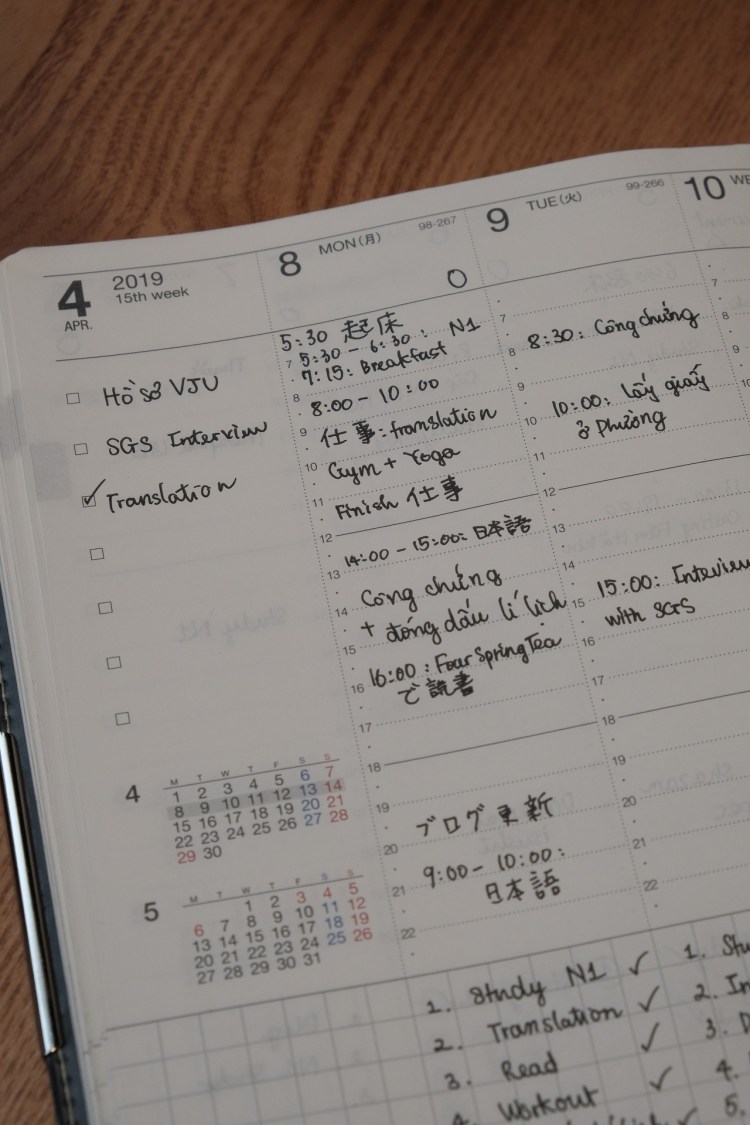 4
APR.
2019
15th week
8 MON(月) 98-267
9 TUE(火) 99-266
10 WE
☐ Hồ sơ VJU
☐ SGS Interview
☑ Translation
☐
☐
☐
☐
5:30 起床
5:30 - 6:30 : N1
7:15: Breakfast
8:00 - 10:00
仕事: translation
Gym + Yoga
Finish 仕事
14:00 - 15:00: 日本語
Công chứng
+ đóng dấu lí lịch
16:00 : Four Spring Tea
で読書
ブログ更新
9:00 - 10:00:
日本語
7
8
9
10
11
12
13
14
15
16
17
18
19
20
21
22
8:30: Công chứng
10:00: lấy giấy
ở Phường
15:00: Interview
with SGS
7
8
9
10
11
12
13
14
15
16
17
18
19
20
21
22
7
8
9
10
4
M T W T F S S
1 2 3 4 5 6 7
8 9 10 11 12 13 14
15 16 17 18 19 20 21
22 23 24 25 26 27 28
29 30
5
M T W T F S S
1 2 3 4 5
6 7 8 9 10 11 12
13 14 15 16 17 18 19
20 21 22 23 24 25 26
27 28 29 30 31
1. Study N1 ✓
2. Translation ✓
3. Read ✓
4. Workout ✓
1. Stu
2. In
3. D
4.
5.